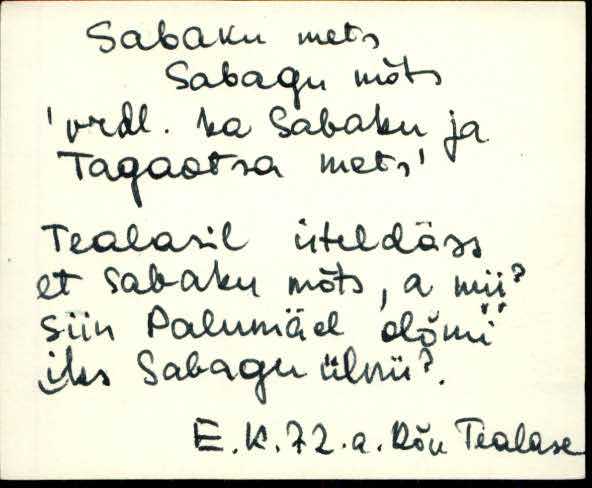 Sabaku mets
Sabagu mõts
'vrdl. ka Sabaku ja
Tagaotsa mets'
Tealasil üteldäss
et Sabaku mõts, a mii?
siin Palumäel olõmi
iks Sabagu ülnü?.
E. K. 72. a. Rõu Tealase